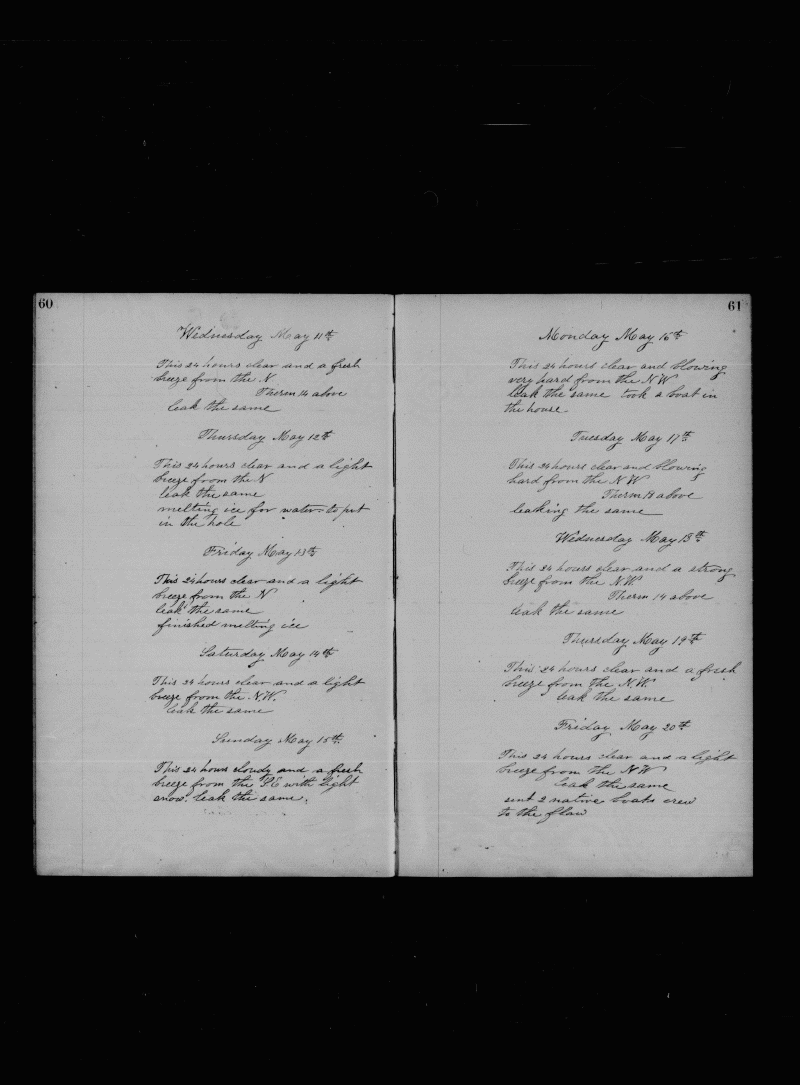 60
Wednesday May 11th
This 24 hours clear and a fresh
breeze from the N
Therm 14 above
leak the same
Thursday May 12th
This 24 hours clear and a light
breeze from the N
leak the same
melting ice for water to put
in the hole
Friday May 13th
This 24 hours clear and a light
breeze from the N
leak the same
finished melting ice
Saturday May 14th
This 24 hours clear and a light
breeze from the N.W.
leak the same
Sunday May 15th
This 24 hours cloudy and a fresh
breeze from the SE with light
snow. leak the same.
61
Monday May 16th
This 24 hours clear and blowing
very hard from the N W
leak the same took a boat in
the house
Tuesday May 17th
This 24 hours clear and blowing
hard from the N W
Therm above
leaking the same
Wednesday May 18th
This 24 hours clear and a strong
breeze from the N.W.
Therm 14 above
leak the same
Thursday May 19th
This 24 hours clear and a fresh
breeze from the N.W
leak the same
Friday May 20th
This 24 hours clear and a light
breeze from the N W
leak the same
sent 2 native boats crew
to the flaw